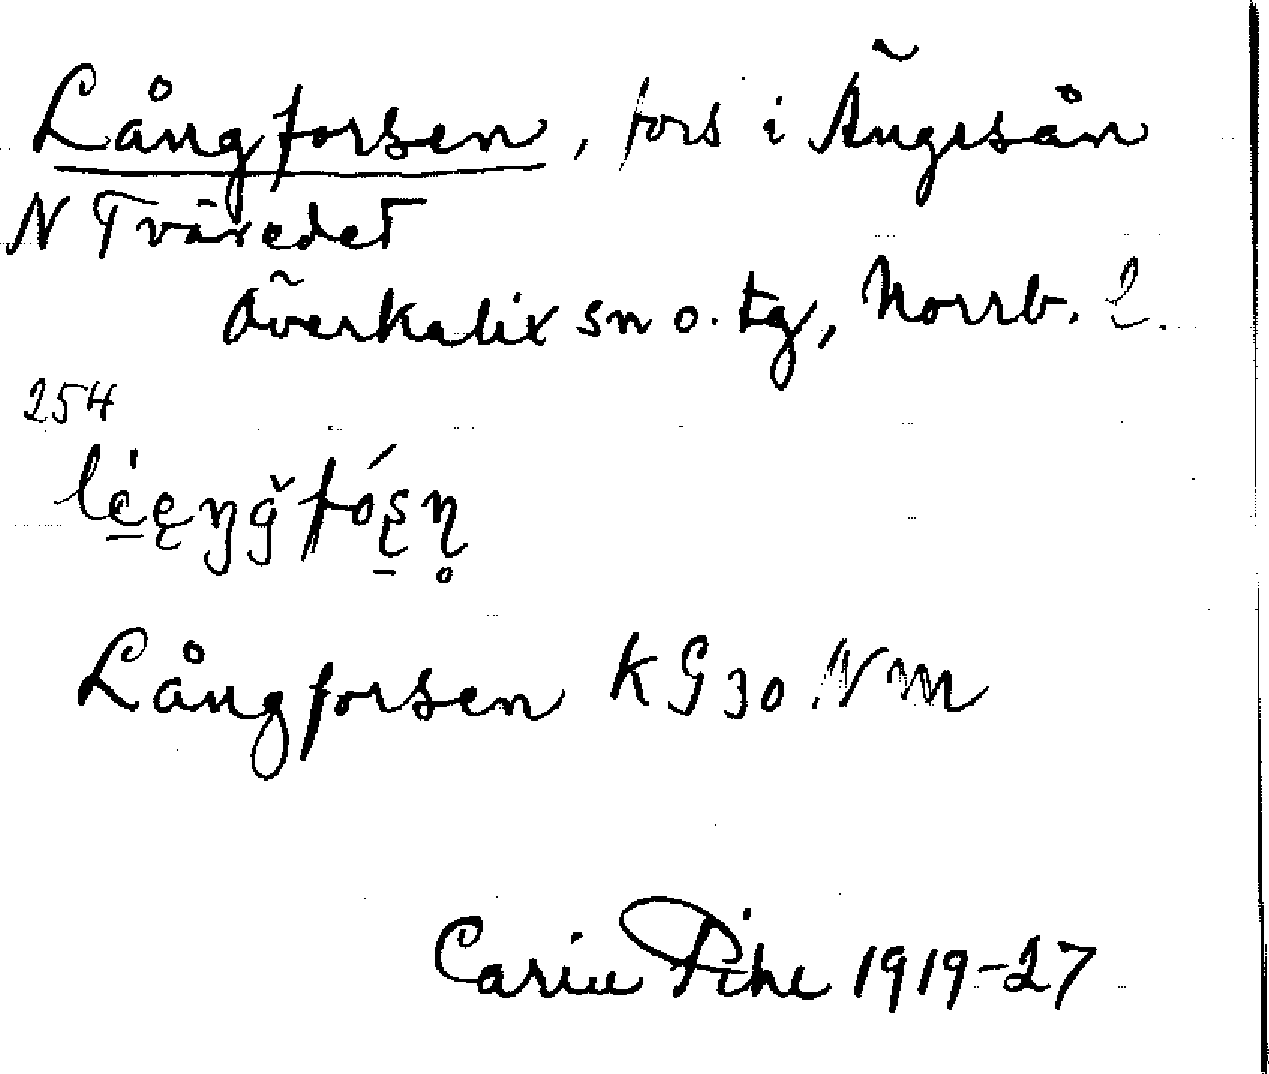 Långforsen, fors i Ängesån
N Tväredet
Överkalix sn o. tg, Norrb. L.
254
Långforsen KG 30 NM
Carin Pihl 1919-27